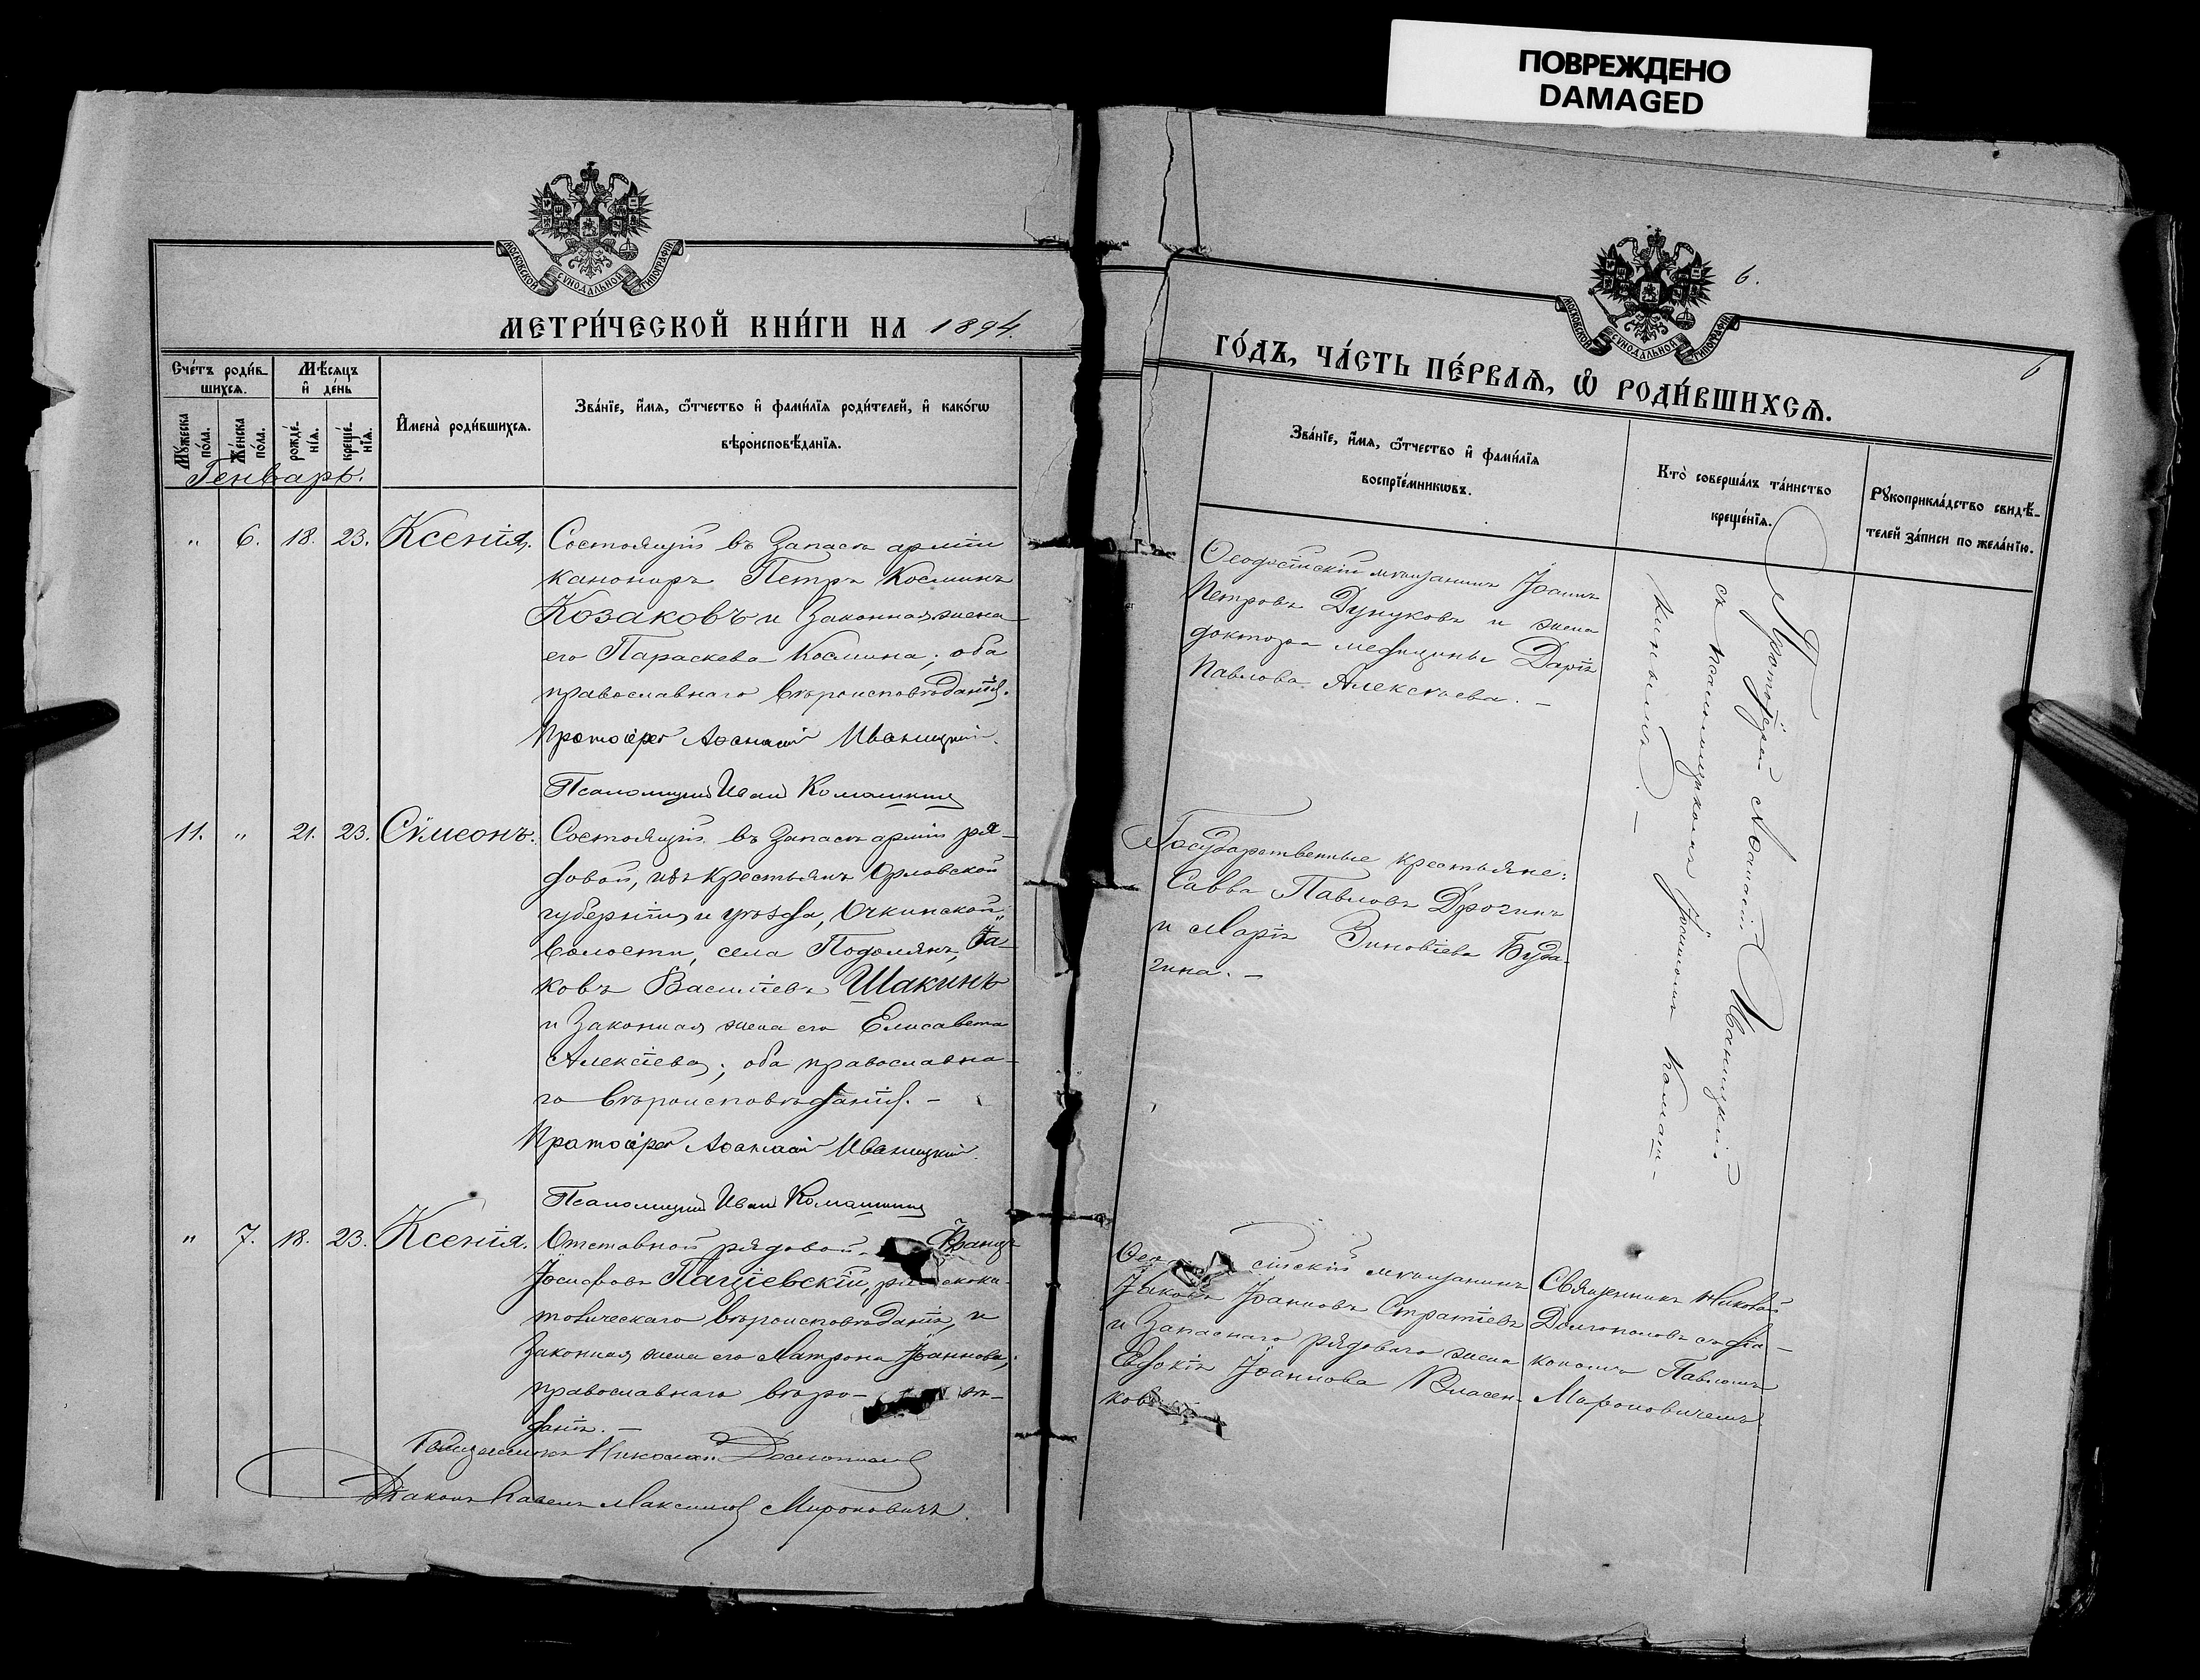 ПОВРЕЖДЕНО
DAMAGED
МОСКОВСКОЙ СѴНОДАЛЬНОЙ ТИПОГРАФІИ
МЕТРИ́ЧЕСКОЙ КНИ́ГИ НА 1894.
Сче́тъ роди́в-
шихсѧ.
Мѣ́сѧцъ
и҆ де́нь
Мꙋ́жеска
по́ла.
Же́нска
по́ла.
рожде́-
нїѧ.
креще́-
нїѧ.
И҆мена̀ роди́вшихсѧ.
Зва́нїе, и҆́мѧ, ѻ҆́тчество и҆ фами́лїѧ роди́телей, и҆ како́гѡ
вѣроисповѣ́данїѧ.
Генварь.
" 6. 18. 23. Ксенія. Состоящій въ запасѣ арміи
канониръ Петръ Косминъ
Козаковъ и законная жена
его Параскева Космина; оба
православнаго вѣроисповѣданія.
Протоіерей Аѳанасій Иваницкій.
Псаломщикъ Иван Комашкин
11. " 21. 23. Сѵмеонъ. Состоящій въ запасѣ арміи ря-
довой, изъ крестьянъ Орловской
губерніи и уѣзда, Очкинской
волости, села Подолянъ, Іа-
ковъ Василіевъ Шакинъ
и законная жена его Елисавета
Алексіева; оба православна-
го вѣроисповѣданія. -
Протоіерей Аѳанасій Иваницкій.
Псаломщикъ Иван Комашкин
" 7. 18. 23. Ксенія. Отставной рядовой Францъ
Іосифовъ Пацієвскій, римскока-
толическаго вѣроисповѣданія, и
законная жена его Матрона Іоаннова;
православнаго вѣро-
данія. -
Священникъ Николай Долгополов
Діаконъ Павелъ Максимов Мироновичъ.
6.
6
МОСКОВСКОЙ СѴНОДАЛЬНОЙ ТИПОГРАФІИ
ГО́ДЪ, ЧА́СТЬ ПЕ́РВАѦ, Ѡ҆ РОДИ́ВШИХСѦ.
Зва́нїе, и҆́мѧ, ѻ҆́тчество и҆ фами́лїѧ
воспрїе́мникѡвъ.
Кто̀ соверша́лъ та́инство
креще́нїѧ.
Рꙋкоприкла́дство свидѣ́-
телей за́писи по жела́нїю.
Ѳеодосійскій мѣщанинъ Іоаннъ
Петровъ Дунуковъ и жена
доктора медицины Дарія
Павлова Алексѣева. -
Протоіерей Аѳанасій Иваницкій
съ псаломщикомъ Іоанномъ Комаш-
кинымъ. -
Государственные крестьяне:
Савва Павловъ Дрогинъ
и Марія Зиновіева Буда-
гина. -
сійскій мѣщанинъ
Іаковъ Іоанновъ Стратіевъ
и запаснаго рядоваго жена
Евдокія Іоаннова Власен-
ков
Священникъ Николай
Долгополовъ съ діа-
кономъ Павломъ
Мироновичемъ.